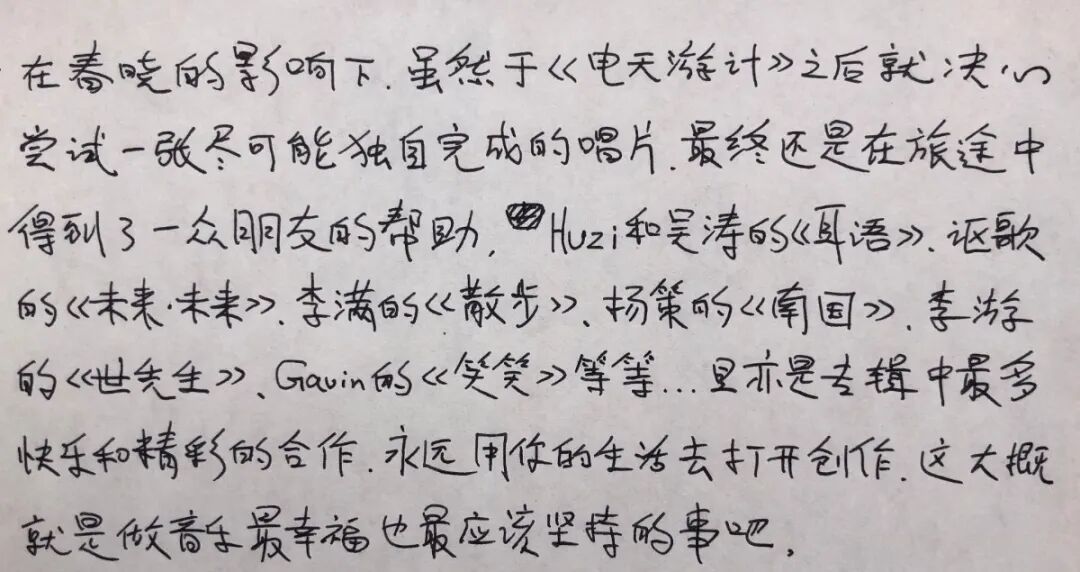 在春晓的影响下.虽然于《电天游计》之后就决心
尝试一张尽可能独自完成的唱片.最终还是在旅途中
得到了一众朋友的帮助, Huzi和吴涛的《耳语》、讴歌
的《未来·未来》、李满的《散步》、扬策的《南国》、李游
的《世先生》、Gavin的《笑笑》等等...且亦是专辑中最多
快乐和精彩的合作.永远用你的生活去打开创作.这大概
就是做音乐最幸福也最应该坚持的事吧.